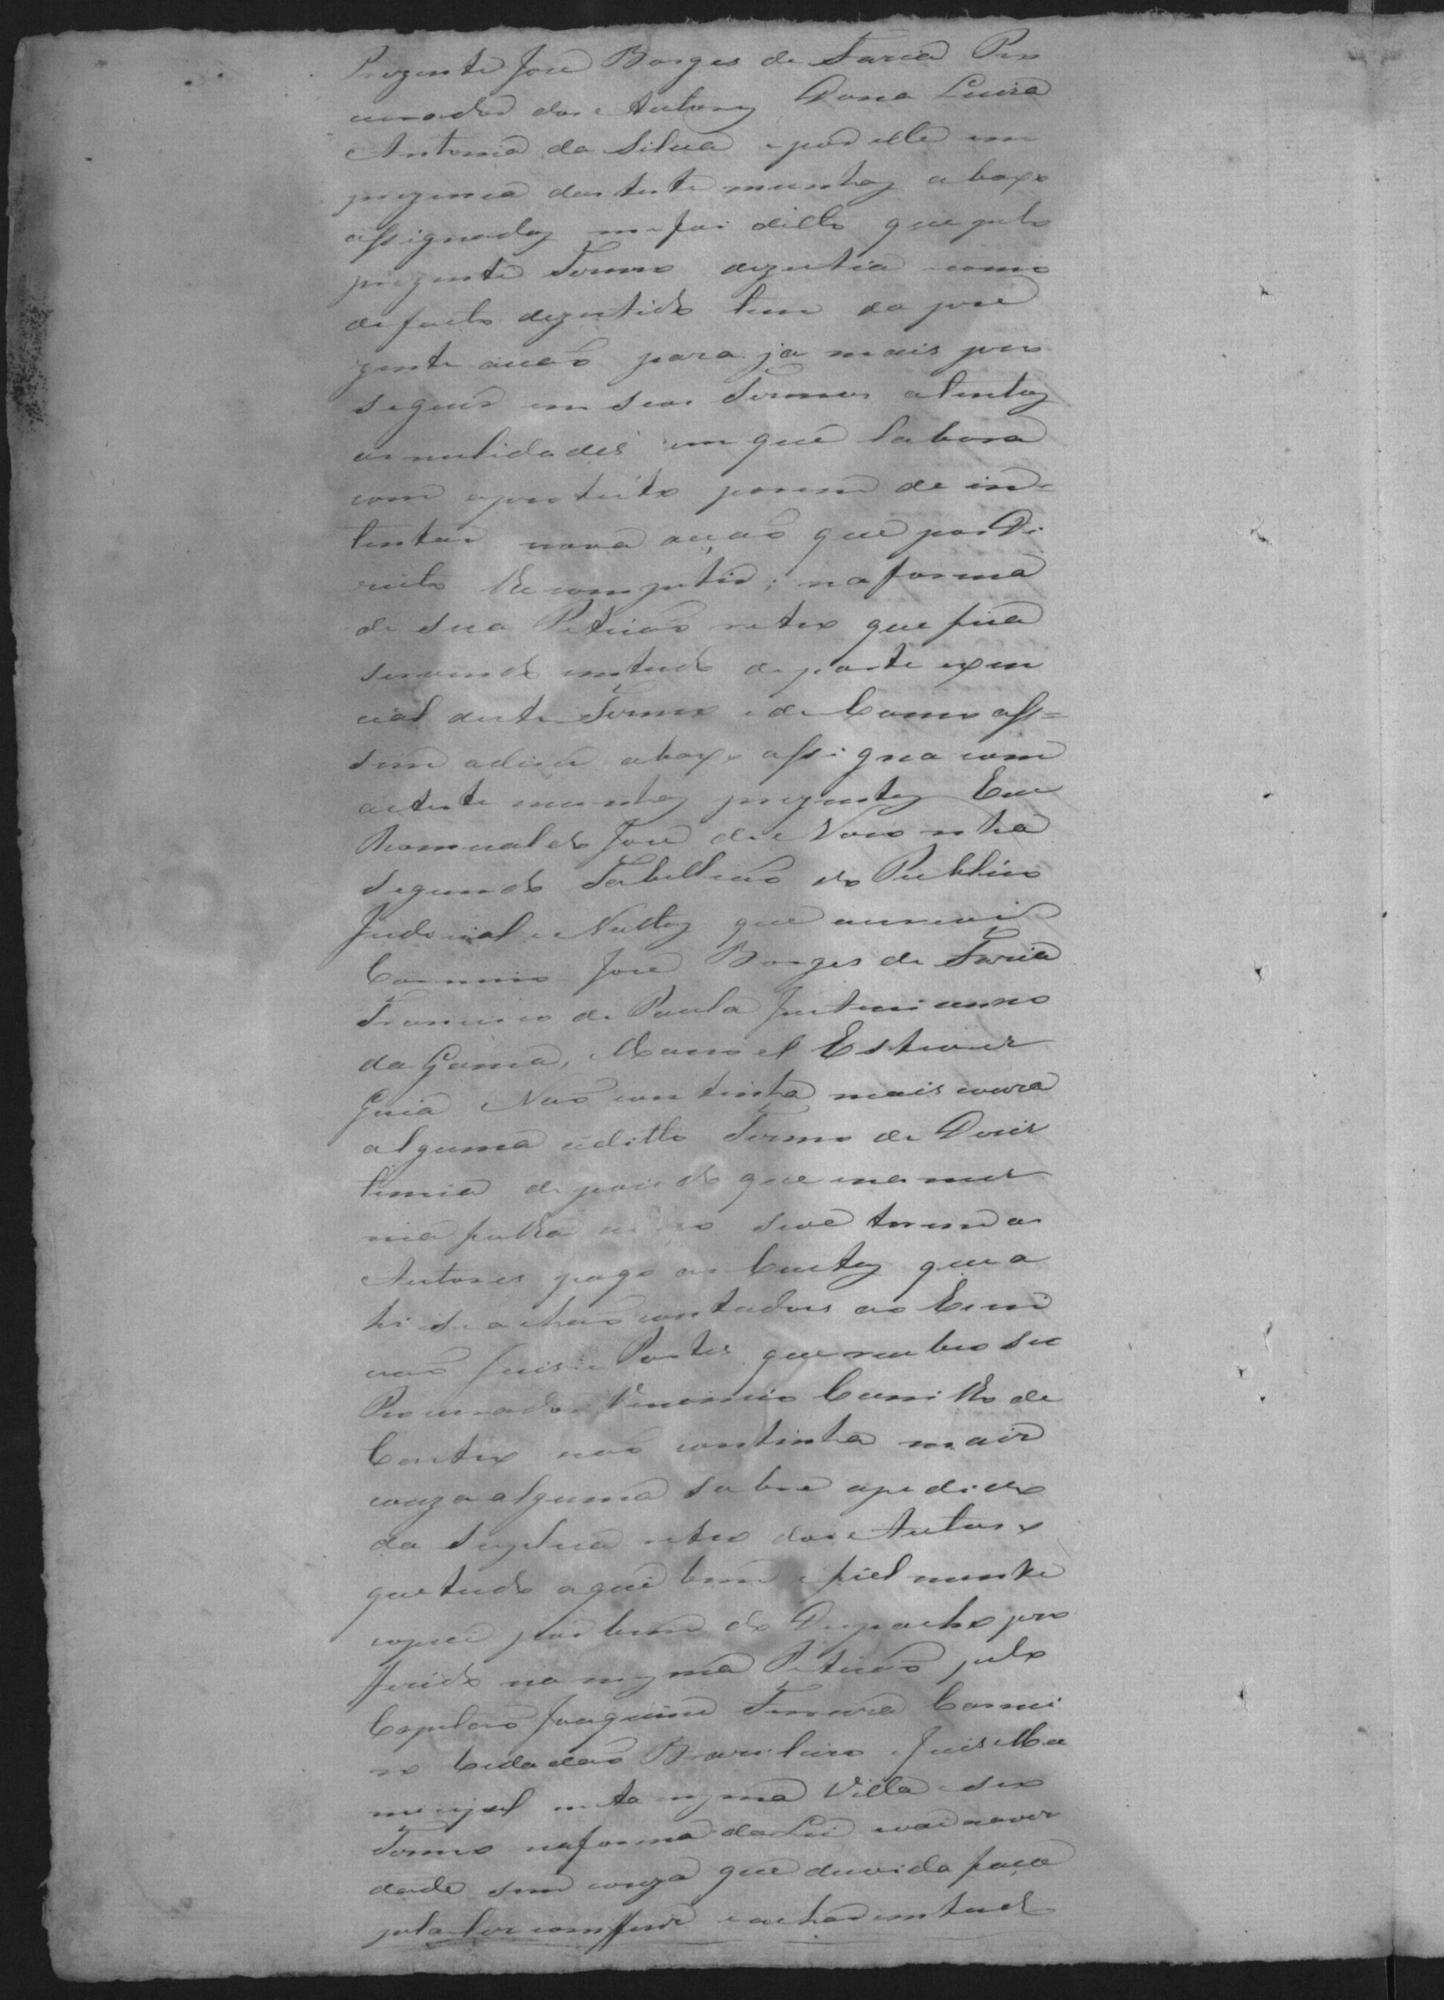 Prezente Joze Borges de Faria Pro
curador dos Autores Dona Luiza
Antonia da Silva e por elle em
prezença das testemunhas abaxo
assignadas me foi ditto que pelo
prezente Termo dezestia como
de facto dezestido tem da pre
zente acão para ja mais pro
seguir em seos Termos atentas
as nulidades em que labora
com o protesto porem de in=
tentar nova acão que por Di
reito lhe competir; na forma
de sua Peticão retro que fica
servindo em tudo de parte exen
cial deste Termo e de Como ass=
sim o disse abaxo assigna com
as testemunhas prezentes Eu
Romualdo José de Noronha
Segundo Tabellião do Publico
Judicial e Nottas que escrevi
Cammo José Borges de Faria
Francisco de Paula Justiniano
da Gama, Manoel Esteves
Guia Não continha mais couza
alguma o ditto Termo de Dezis
tencia depois do que na mes
ma folha verso se ve terem os
Autores pago as Custas que a
hi se achão contadas ao Escri
vão Juis e Partes que recebeo seo
Procurador Venancio Camillo de
Castro não continha mais
couza alguma sobre o pedido
da Suplica retro dos Autores
que tudo aqui bem e fielmente
copiei por bem do Despacho pro
ferido na mesma Peticão pelo
Capitão Joaquim Ferreira Carnei
ro Cidadão Brasileiro e Juis Mu
nicipal nesta mesma Villa e seo
Termo na forma da Lei e vai na ver
dade sem couza que duvida faca
pela ler comferir e achar em tudo